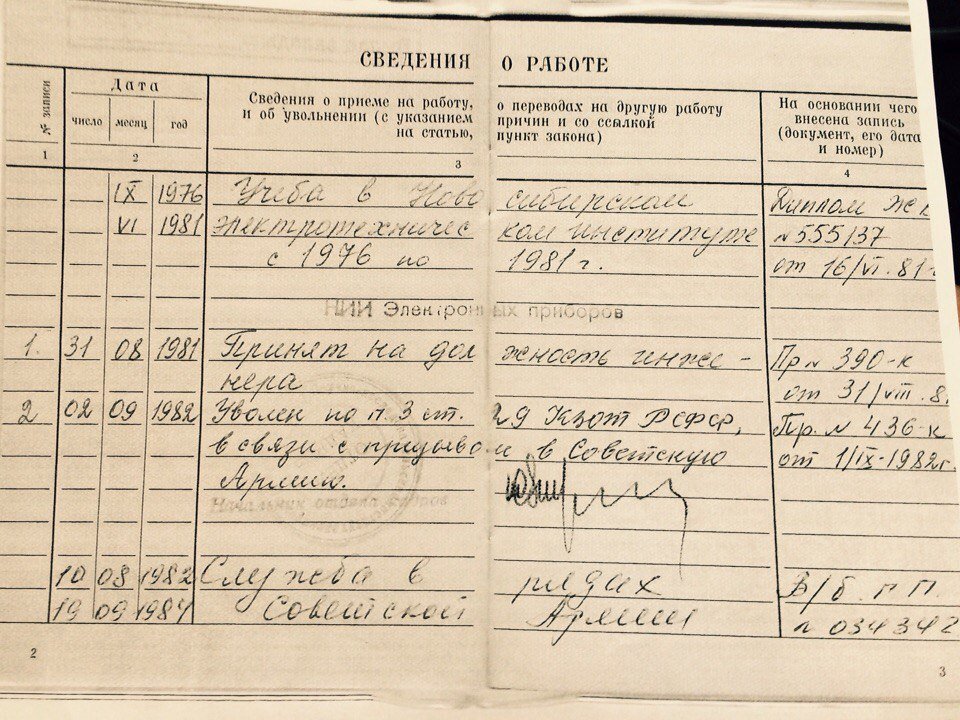 СВЕДЕНИЯ О РАБОТЕ
№ записи
Дата
число месяц год
Сведения о приеме на работу, о переводах на другую работу
и об увольнении (с указанием причин и со ссылкой
на статью, пункт закона)
На основании чего
внесена запись
(документ, его дата
и номер)
1 2 3 4
IX 1976 Учеба в Новосибирском Диплом
VI 1981 электротехническом институте №555137
с 1976 по 1981 г. от 16/VI.81г
НИИ Электронных приборов
1. 31 08 1981 Принят на должность инже- Пр № 390-к
нера от 31/VIII.8
2 02 09 1982 Уволен по п. 3 ст. 29 КЗОТ РСФСР, Пр. № 436-к
в связи с призывом в Советскую от 1/IX-1982г.
Армию.
Начальник отдела кадров
10 08 1982 Служба в рядах В/б
19 09 1984 Советской Армии № 034342
2 3